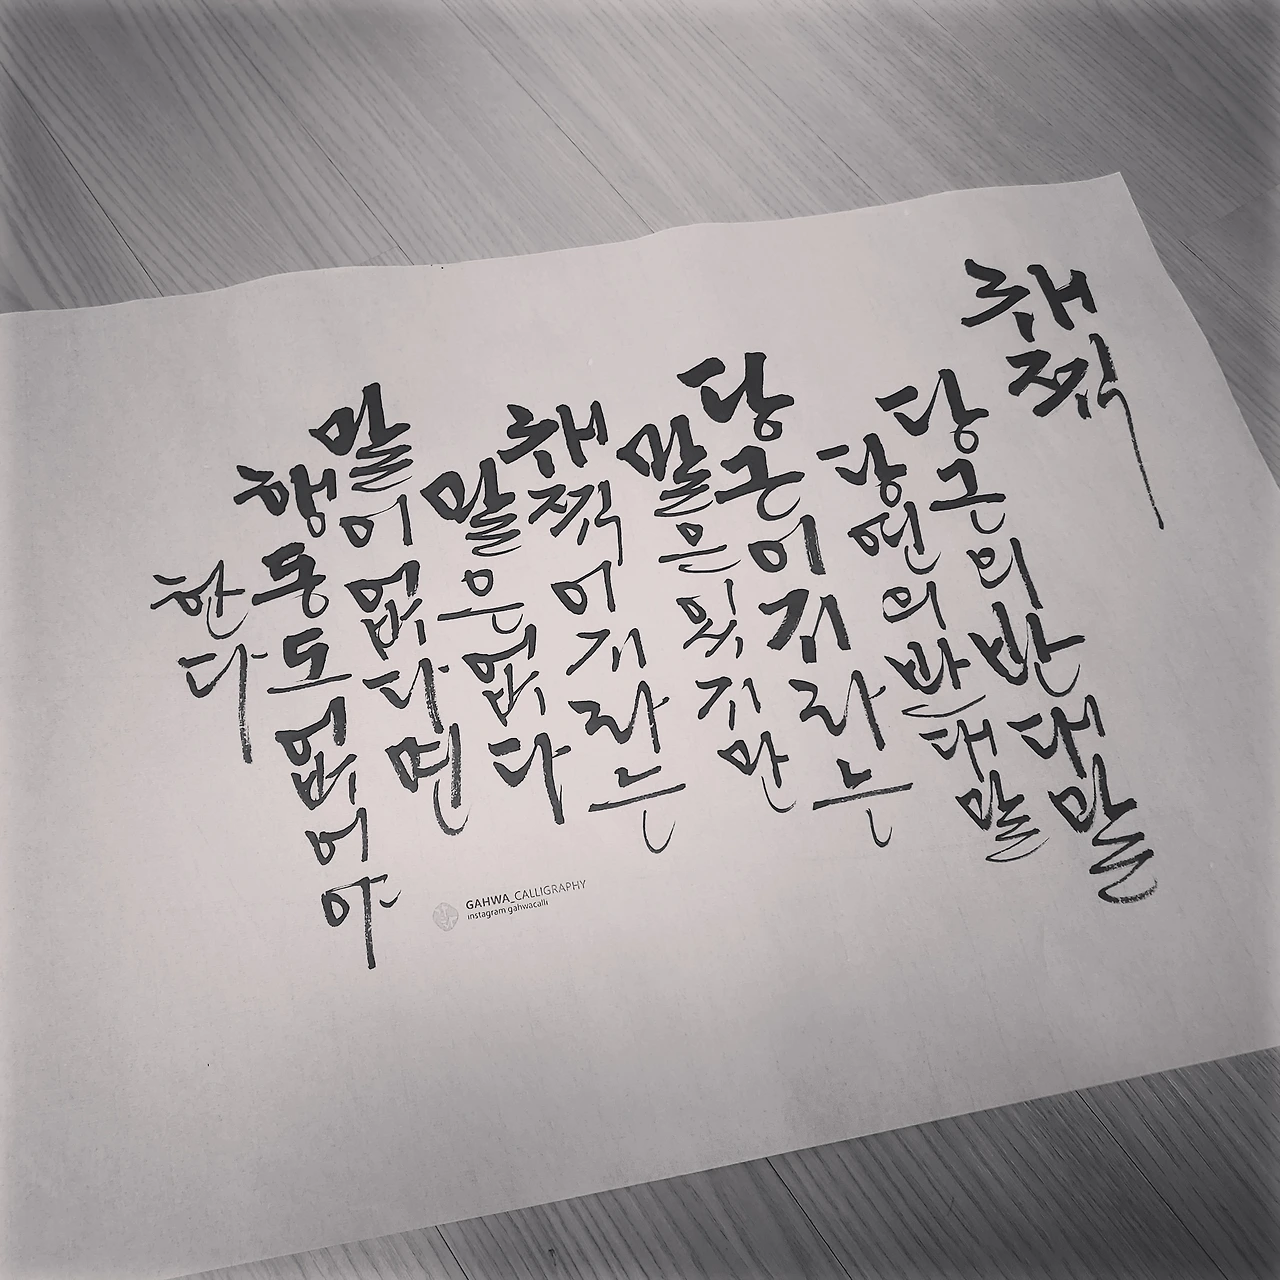 채찍
당근의 반대말
당연의 반대말
당근이지라는
말은 있지만
채찍이지라는
말은 없다
말이 없다면
행동도 없어야
한다
GAHWA_CALLIGRAPHY
instagram gahwacalli